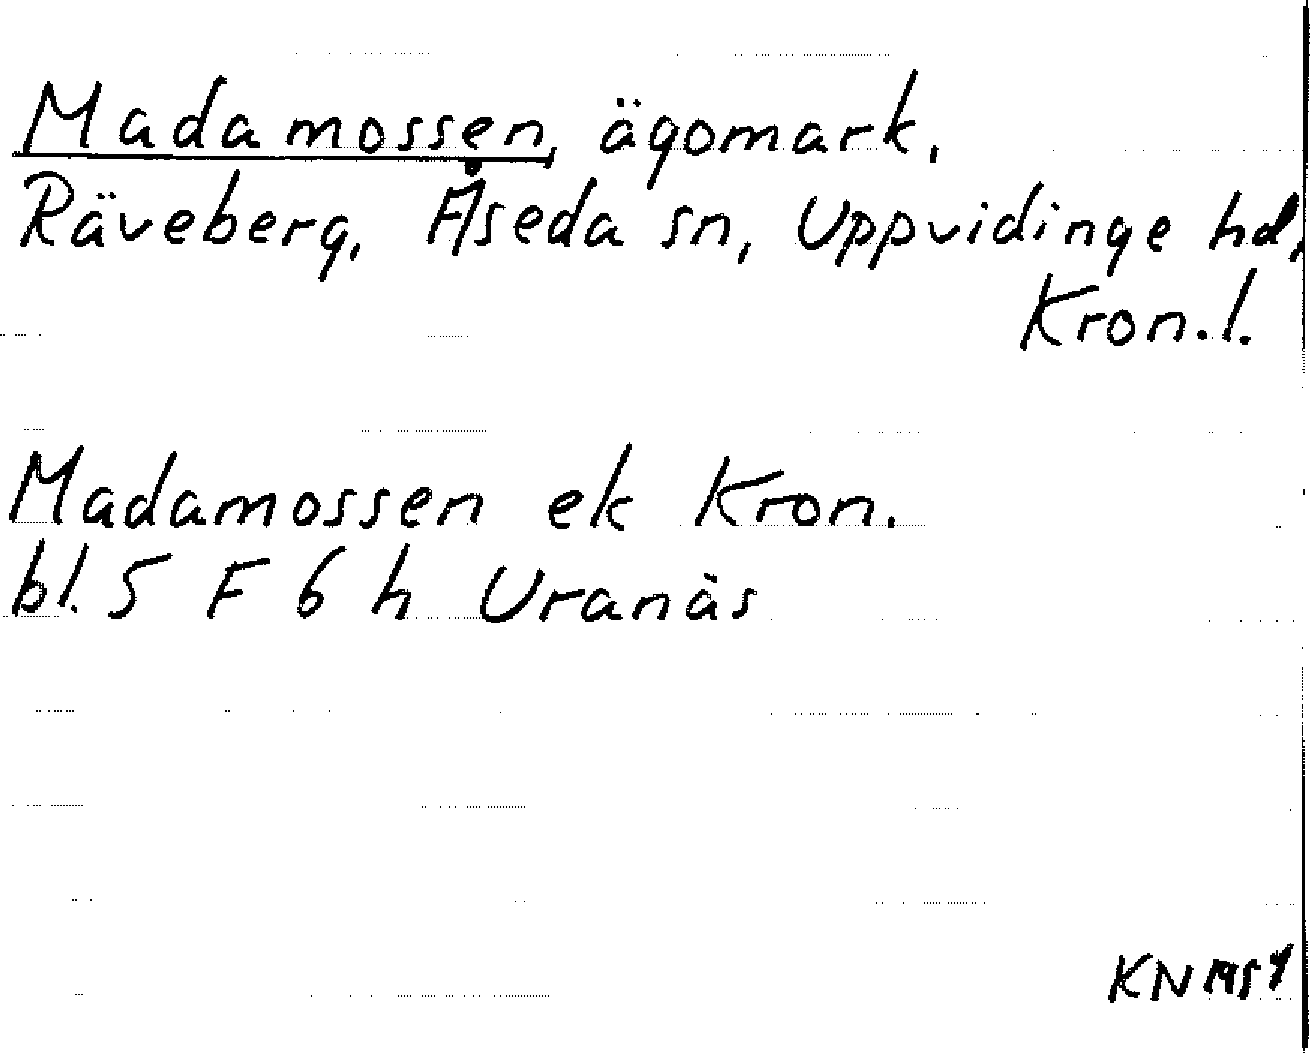 Madamossen, ägomark,
Räveberg, Åseda sn, Uppvidinge hd,
Kron.l.
Madamossen ek Kron.
bl. 5 F 6 h Uranäs
KN